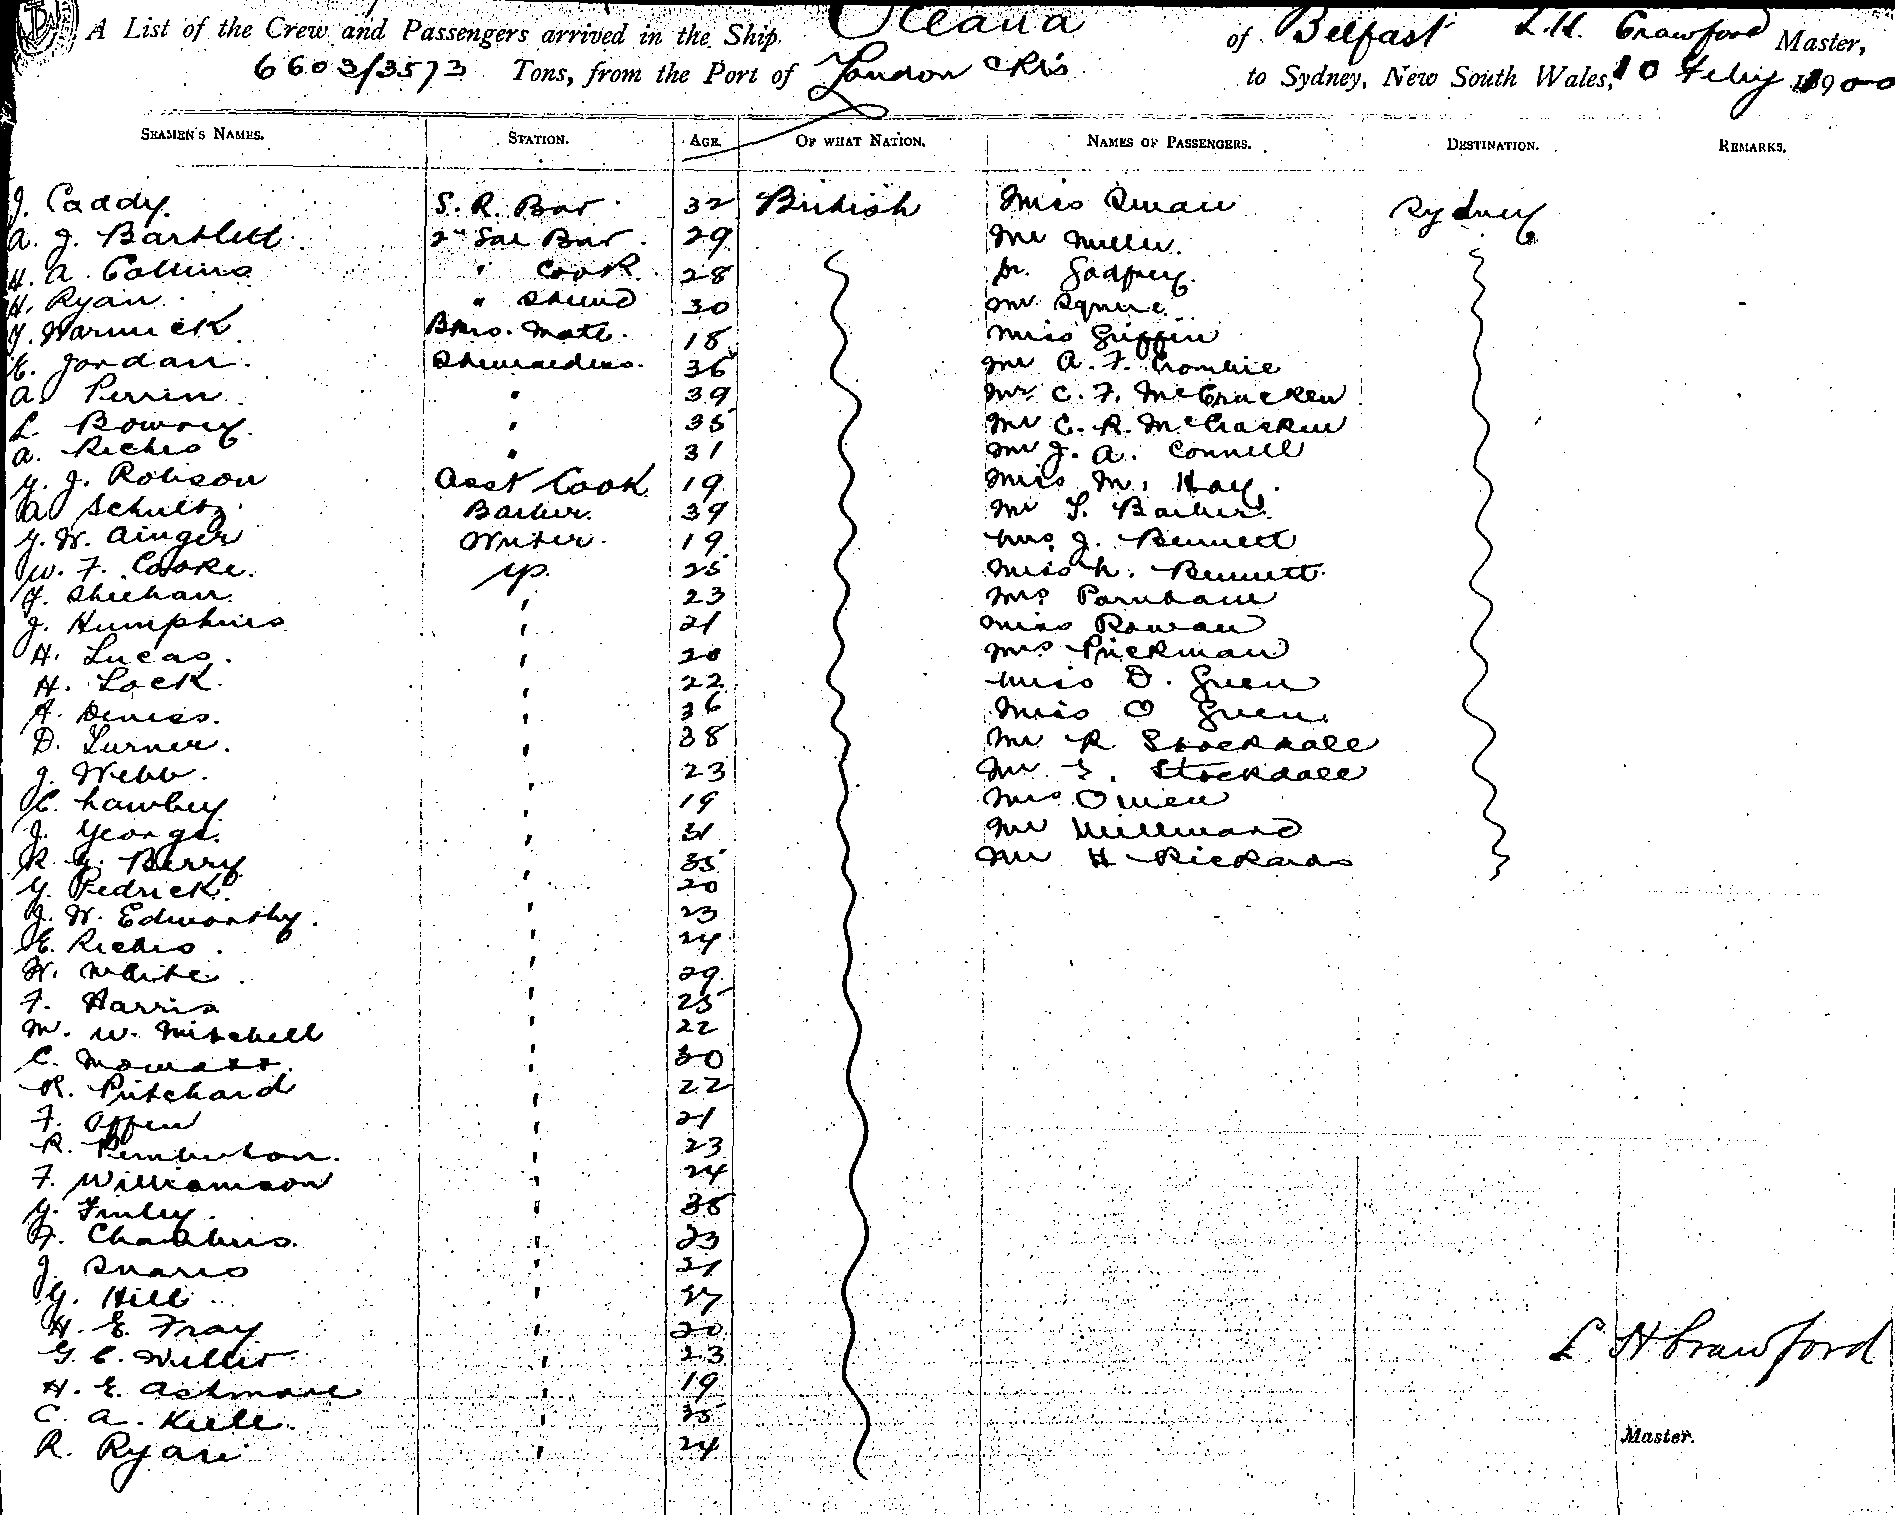 A List of the Crew and Passengers arrived in the Ship Oceana of Belfast L.H. Crawford Master,
6603/3573 Tons, from the Port of London to Sydney, New South Wales, 10 Feby 1900
SEAMEN'S NAMES. STATION. AGE. OF WHAT NATION. NAMES OF PASSENGERS. DESTINATION. REMARKS.
J. Caddy. S. R. Bar 32 British Miss Swan Sydney
A. J. Bartlett 2nd Sal Bar. 29 Mr Miller.
H. A. Collins " Cook 28 Dr. Godfrey.
H. Ryan " 30 Mr Squire
J. Warwick Bkrs. Mate. 18 Miss Griffin
E. Jordan. Stewardess. 36 Mr A. F. Crombie
A. Perrin " 39 Mr C. F. McCracken
L. Bowry. " 35 Mr C. R. McCracken
A. Riches " 31 Mr J. A. Connell
J. Robson Asst Cook 19 Miss M. Hay.
A. Schultz. Barber. 39 Mr Barber.
J. W. Ainger Writer. 19 Mrs J. Bennett
W. F. Cooke. 25 Miss Bennett.
J. Sheehan. " 23 Mrs
J. Humphries " 21 Miss Rowan
H. Lucas. " 20 Mrs Prickman
H. Lock. " 22 Miss D. Green
A. Deness. " 36 Miss O Green
D. Turner. " 38 Mr R Stockdale
J. Webb. " 23 Mr Stockdale
C. Hawley " 19 Mrs Owen
J. George. " 31 Mr Millward
R. G. Berry " 35 Mr H Rickards
G. Pedrick. " 20
J. W. Edworthy. " 23
E. Riches. " 24
W. White. " 29
F. Harris " 25
M. W. Mitchell " 22
C. Mowatt. " 30
R. Pritchard " 22
F. Offen " 21
R. Pemberton. " 23
F. Williamson " 24
G. Finley. " 38
F. Chambers. " 23
J. " 21
G. Hill " 27
H. E. Fray. " 20
G. C. Willis " 23
H. E. Ashmore " 19
C. A. Keele. " 35
R. Ryan " 24
L H Crawford
Master.